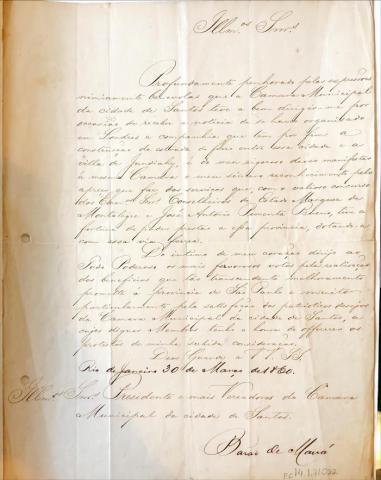 Illm.os Snr.s
Profundamente penhorado pelas expressões
nimiamente benevolas que a Camara Municipal
da cidade de Santos teve a bem dirigir-me por
occasião de receber a noticia de se haver organisado
em Londres a companhia que tem por fim a
construcção da estrada de ferro entre essa cidade e a
villa de Jundiahy, é do meu rigoroso dever manifestar
á mesma Camara o meu sincero reconhecimento pelo
apreço que faz dos serviços que, com o valioso concurso
dos Exm.os Snr.s Conselheiros de Estado Marquez de
Montalegre e José Antonio Pimenta Bueno, tive a
fortuna de poder prestar a essa provincia, dotando-a
com essa via ferrea.
Do intimo de meu coração dirijo ao
Todo Poderoso os mais fervorosos votos pela realização
dos beneficios que tão melhoramento
promette á Provincia de São Paulo e
particularmente pela satisfação dos patrioticos desejos
da Camara Municipal da cidade de Santos, a
cujos dignos Membros tenho a honra de offerecer os
protestos de minha subida consideração.
Deos Guarde a V.V. S.S.
Rio de Janeiro 30 de Março de 1860.
Illm.os Snr.s Presidente e mais Vereadores da Camara
Municipal da cidade de Santos.
Barão de Mauá